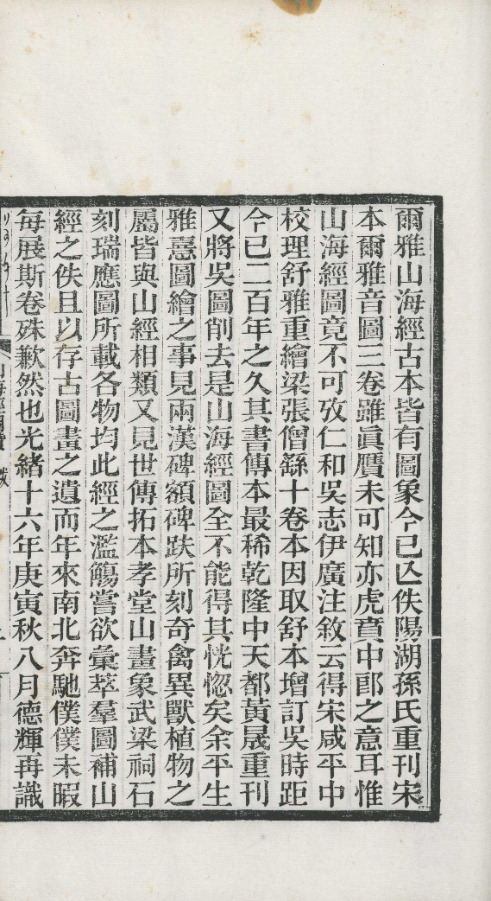 爾雅山海經古本皆有圖象今已亾佚陽湖孫氏重刊宋
本爾雅音圖三卷雖眞贋未可知亦虎賁中郎之意耳惟
山海經圖竟不可攷仁和吳志伊廣注敘云得宋咸平中
校理舒雅重繪梁張僧繇十卷本因取舒本增訂吳時距
今已二百年之久其書傳本最稀乾隆中天都黃晟重刊
又將吳圖削去是山海經圖全不能得其恍惚矣余平生
雅憙圖繪之事見兩漢碑額碑趺所刻奇禽異獸植物之
屬皆與山經相類又見世傳拓本孝堂山畫象武梁祠石
刻瑞應圖所載各物均此經之濫觴嘗欲彙萃羣圖補山
經之佚且以存古圖畫之遺而年來南北奔馳僕僕未暇
每展斯卷殊歉然也光緒十六年庚寅秋八月德輝再識